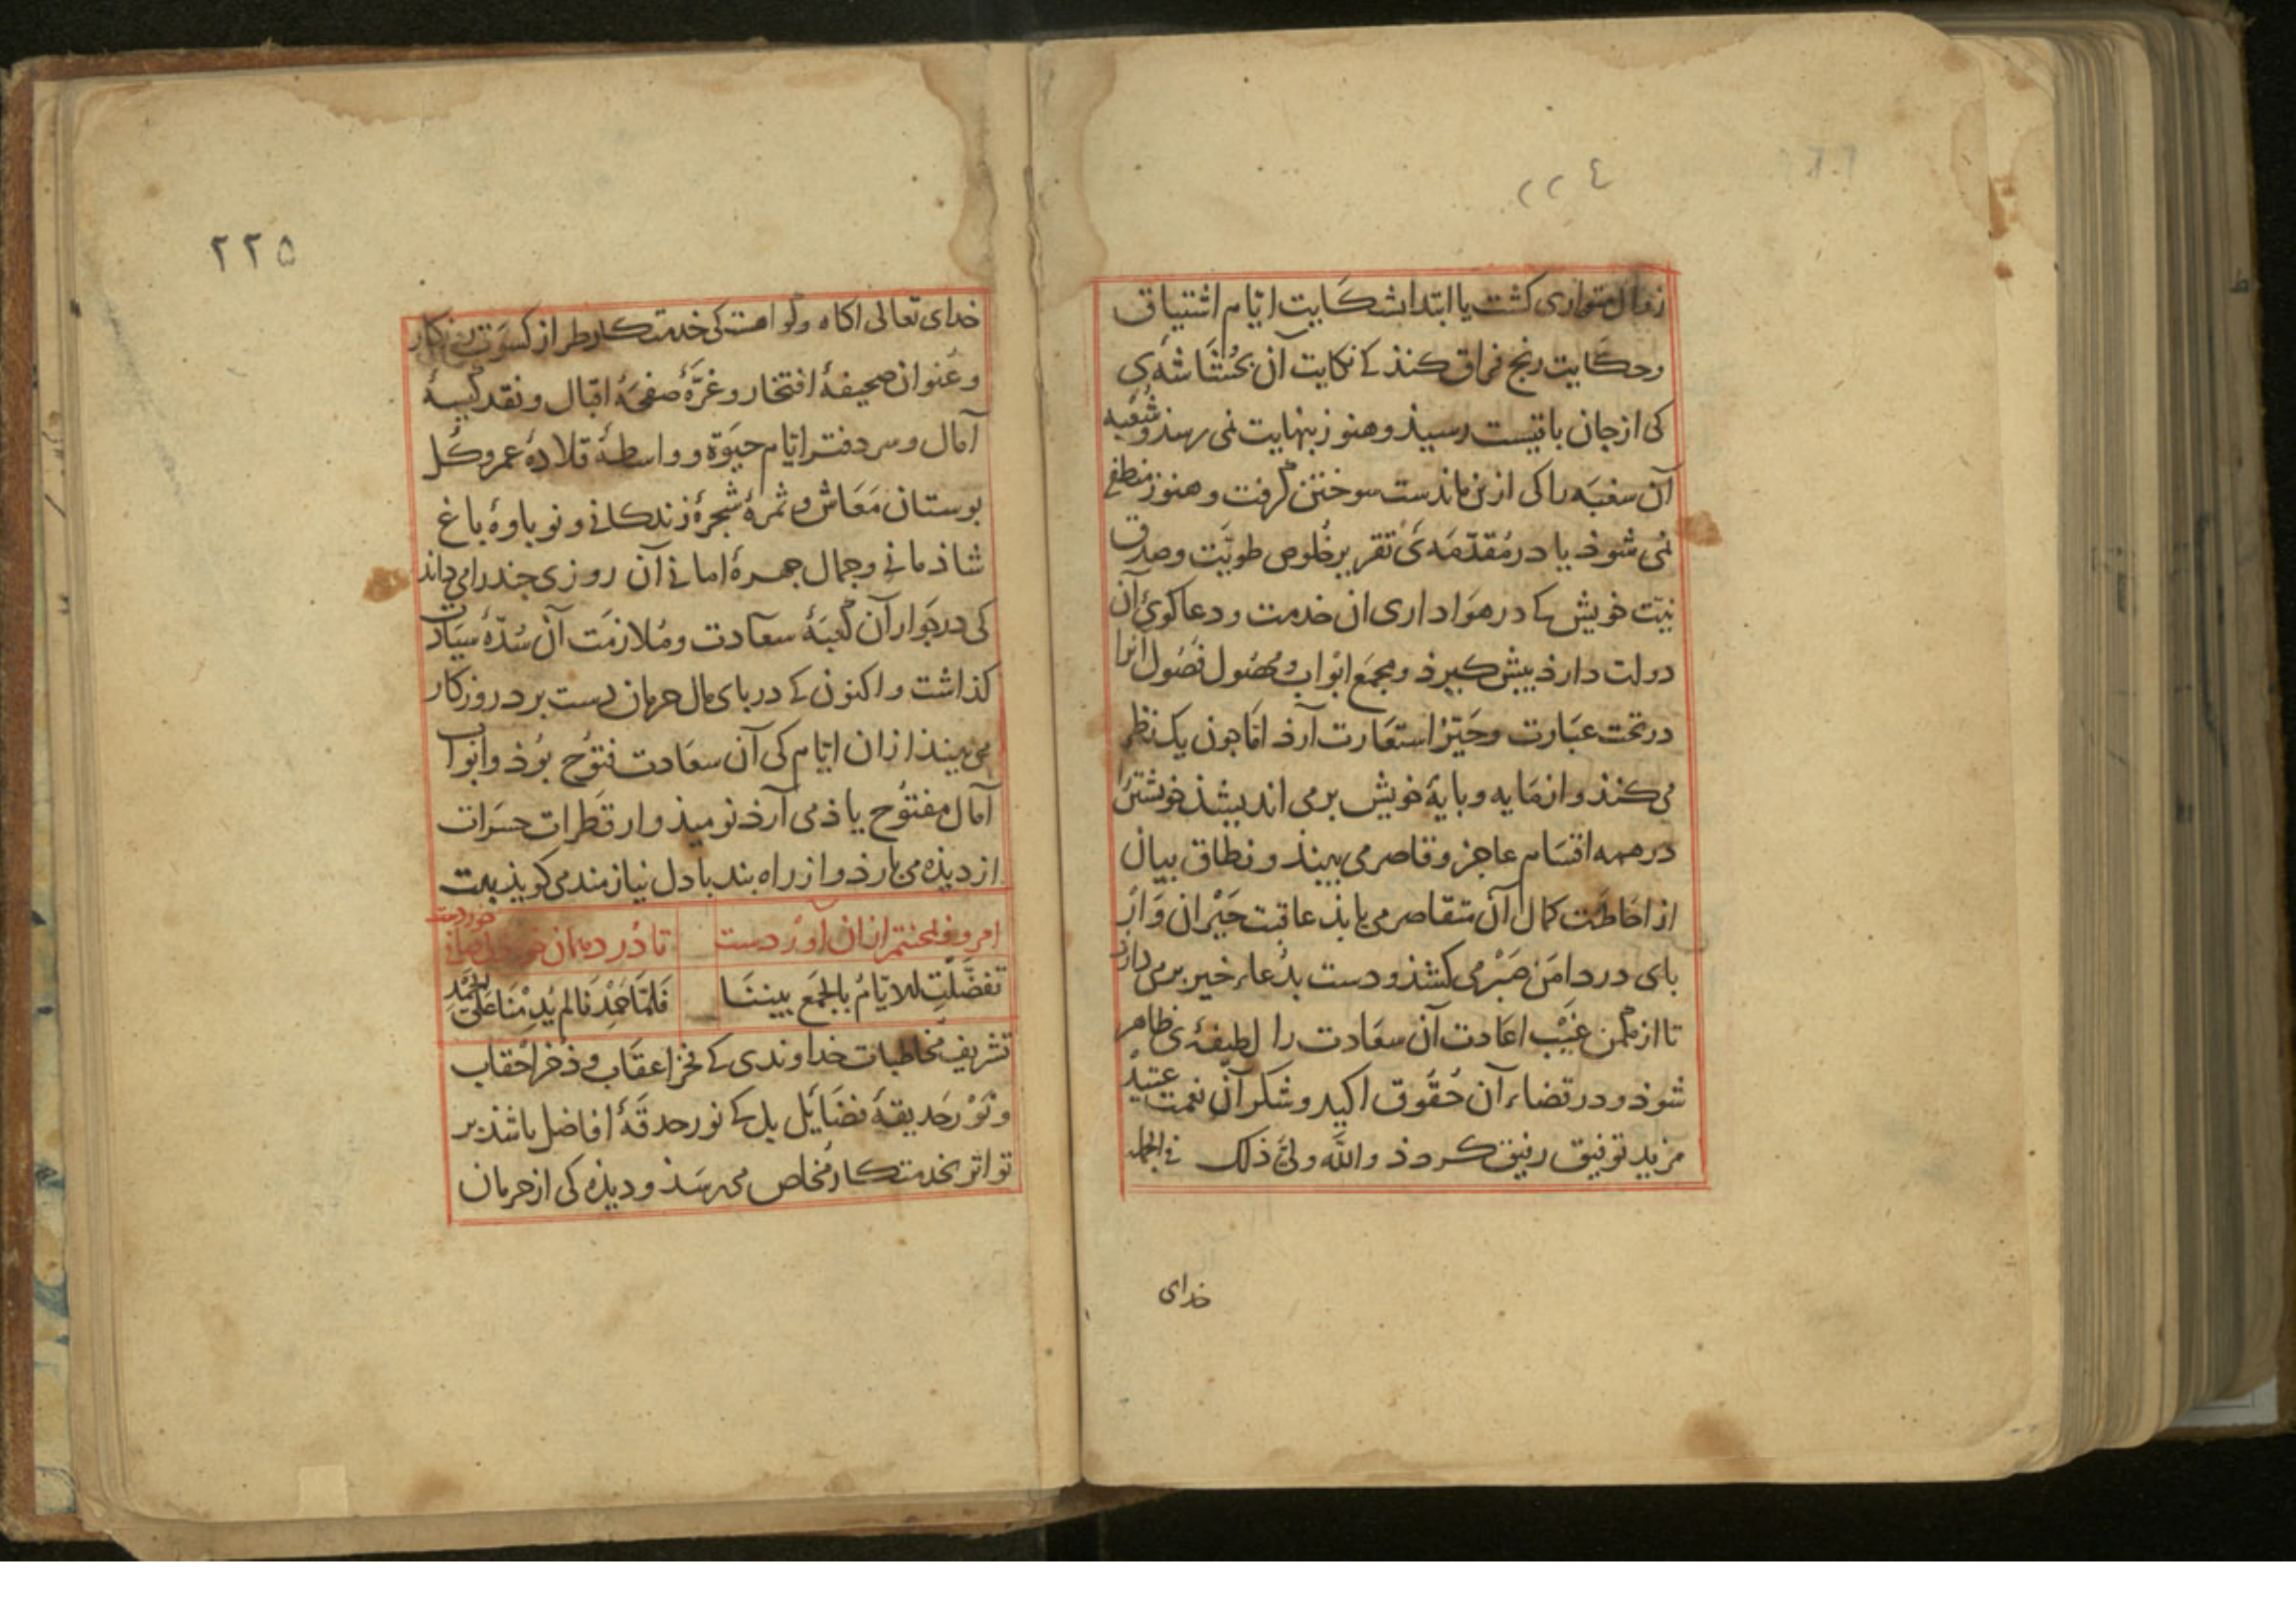 ٢٢٤
زوال متواری کشت یا ابتدا بشکایت ایّام اشتیاق
وحکایت رنج فراق کنذ کے نکایت آن بحُشَاشَهٔ
کی از جان باقیست رسیذ وهنوز بنهایت نمی رسذ وشُعْبه
آن سغبَه را کی از تن ماندست سوختن کرفت وهنوز منطفی
نمی شوذ یا در مُقَدّمَهٔ تقریر خُلوص طویَّت وصدق
نیّت خویش کے در هَواداری ان خدمت ودعاکوئ آن
دولت دارذ بیش کیرذ ومجمَع ابْواب ومحصُول فصُول انرا
در تحت عبَارت وحَیّز استعَارت آرذ امّا جون یک نظر
می کنذ واز مَایه وبایهٔ خویش برمی اندیشذ خویشتن را
در همه اقسَام عاجز وقاصر می بینذ ونطاق بیان
از احَاطَت کمال آن متقاصر می یابذ عاقبت حَیْران وَار
بای در دامَن صَبْر می کشذ ودست بدُعاء خیر برمی دارذ
تا از مکمن غیْب اعَادت آن سعَادت را لطیفهٔ ظاهر
شوذ ودر قضاء آن حُقُوق اکید وشکر آن نعمت عتیدْ
مزید توفیق رفیق کردذ واللّه ولیّ ذلک فی الجمله
خدای
٢٢٥
خدای تعالی اکاه وکواهست کی خدمتکار طراز کسوَت
وعُنوان صحیفهٔ افتخار وغرَّهٔ صفحَهٔ اقبال ونقد کیسهٔ
آمال وسر دفتر ایّام حیَوة وواسطهٔ قلادهٔ عمر وکل
بوستان مَعَاش وثمرهٔ شجرهٔ زندکانی ونوباوهٔ باغ
شاذمانی وجمال جهرهٔ امانی آن روزی جند را می داند
کی در جوار آن کعبَهٔ سعادت ومُلازمَت آن سُدّهٔ سیَادت
کذاشت واکنون کے در بای مال حرمان دست برد روزکار
می بینذ ازان ایّام کی آن سعَادت فتوُح بوُذ وابْواب
آمال مفتُوح یاذ می آرذ نومیذ وار قطَرات حسَرات
از دیذه می بارذ واز راه بند با دل نیازمند می کویذ بیت
تفضّلَتِ الایّامُ بالجَمَع بینَنَا فَلمّا حَمِدْنَا لم یُدِمْنَا عَلَی الحَمْدِ
تشریف مخاطبات خداوندی کے فخر اعقَاب وذخر احْقاب
ونَوْر حَدیقهٔ فضَایل بل کے نور حدقهٔ افاضل باشذ بر
تواتر بخدمتکار مُخلص می رسَذ ودیذه کی از حرمان